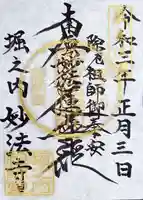 令和三年正月三日
除厄祖師御宝前
南無妙法蓮華経
堀之内妙法寺